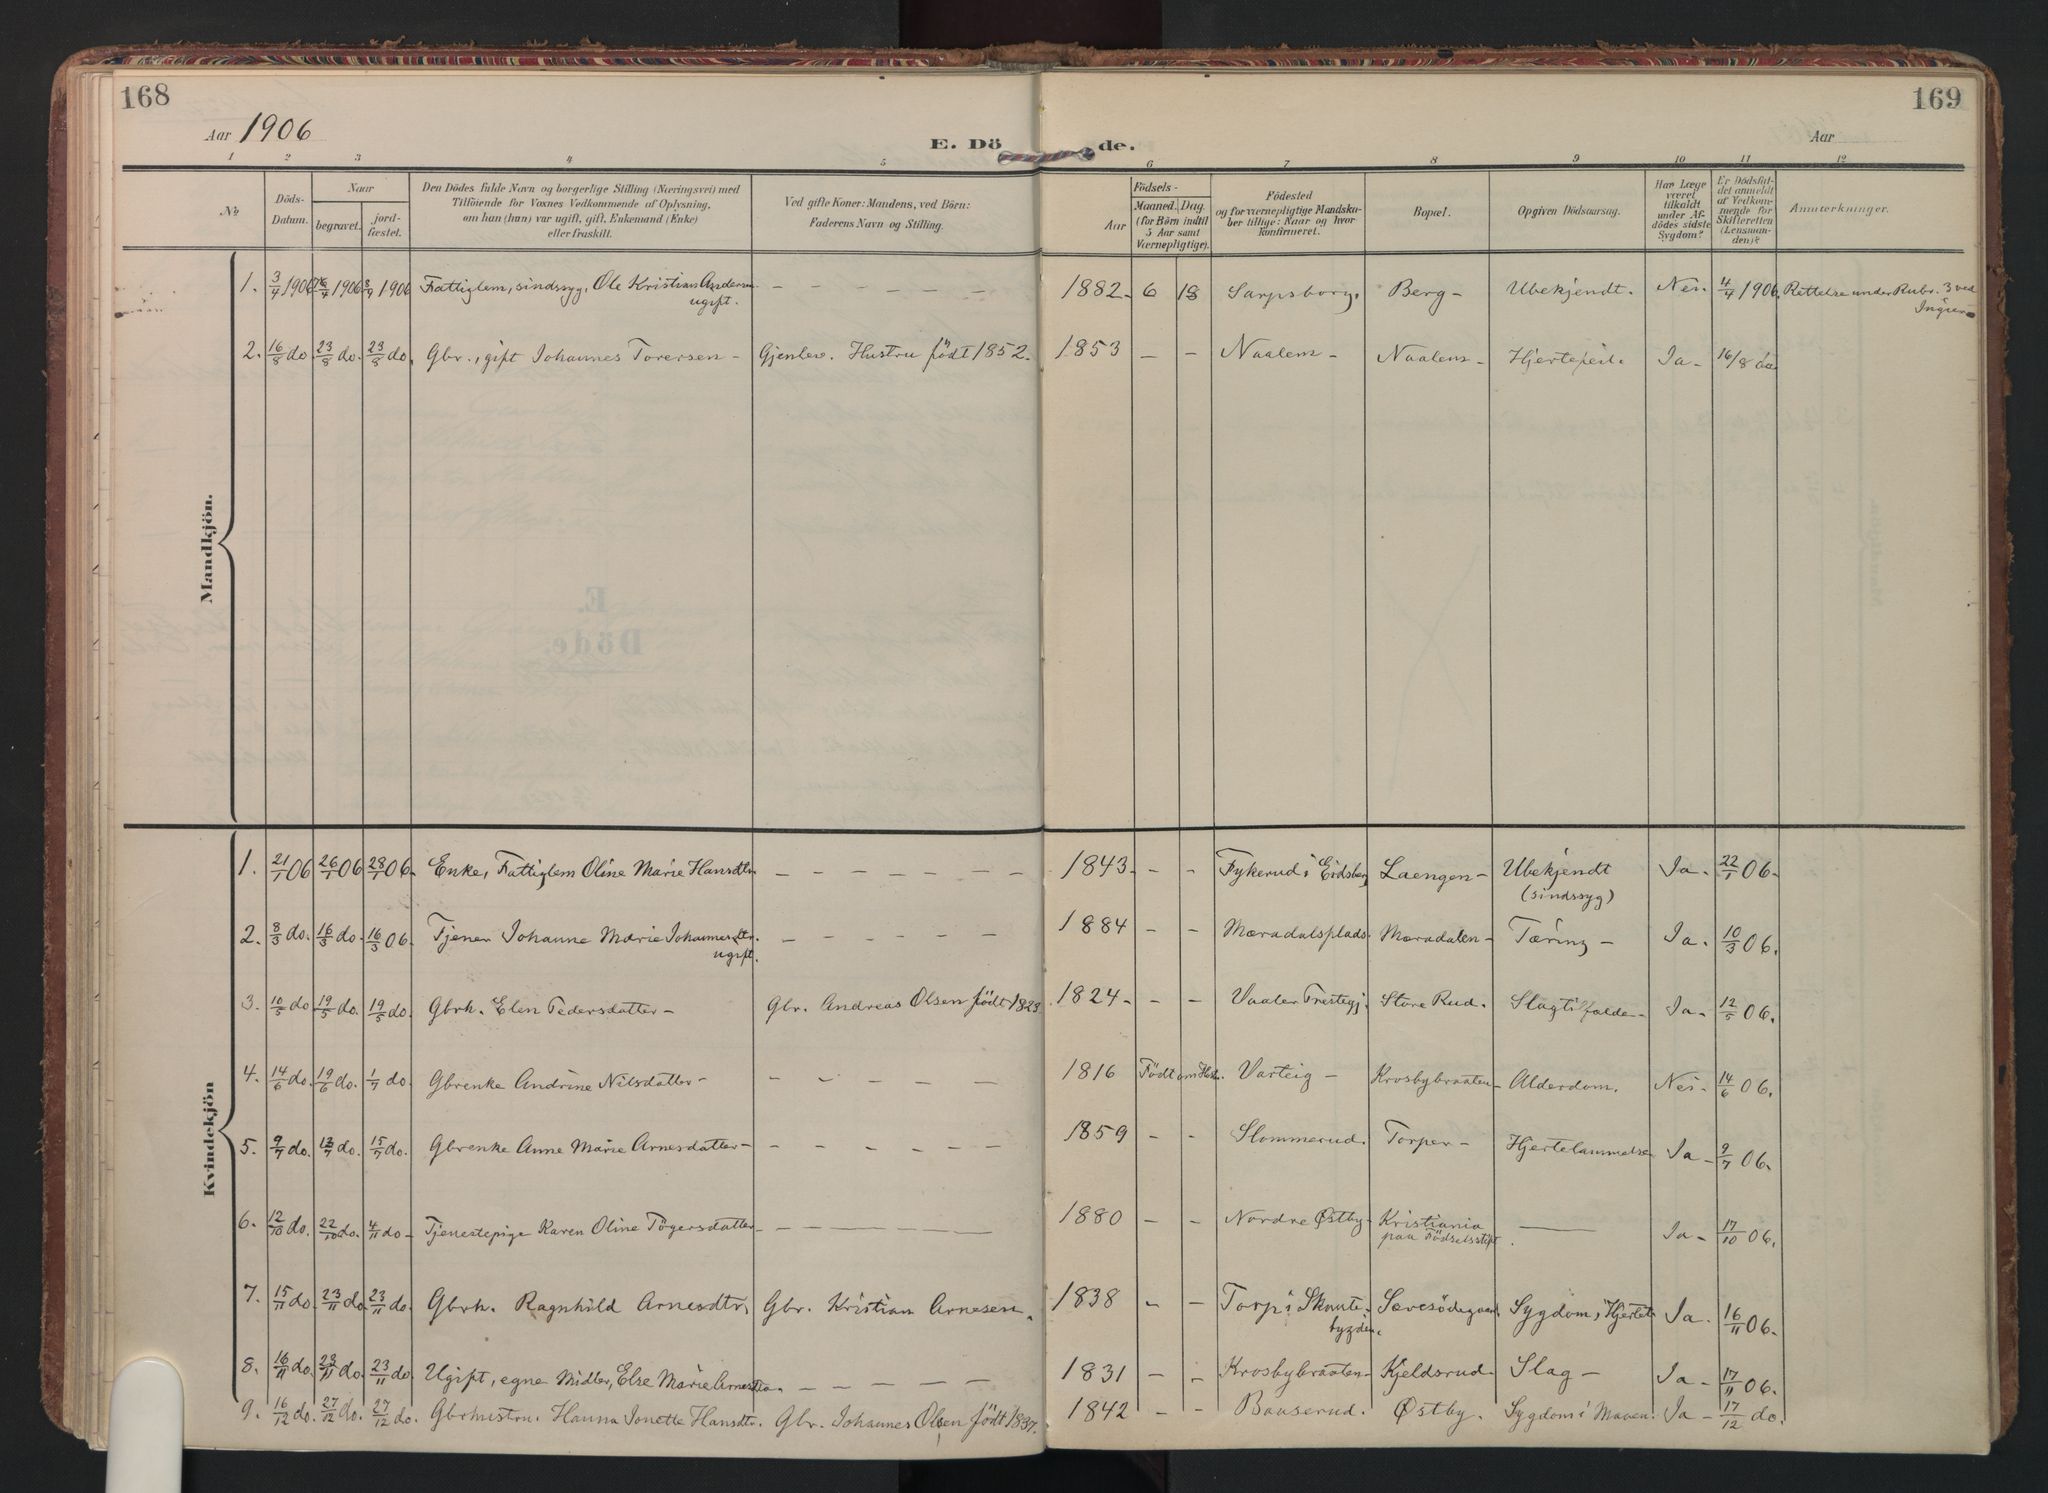 168
169
Aar 1906
E. Dö de.
Aar
1 2 3 4 5 6 7 8 9 10 11 12
No.
Döds-Datum.
Naar
begravet.
jord-fæstet.
Den Dödes fulde Navn og borgerlige Stilling (Næringsvei) med
Tilföiende for Voxnes Vedkommende af Oplysning,
om han (hun) var ugift, gift, Enkemand (Enke)
eller fraskilt.
Ved gifte Koner: Mandens, ved Börn:
Faderens Navn og Stilling.
Födsels-
Aar
Maaned. Dag.
(for Börn indtil
5 Aar samt
Værnepligtige).
Födested
og for værnepligtige Mandska-
ber tillige: Naar og hvor
konfirmeret.
Bopæl.
Opgiven Dödsaarsag.
Har Læge
været
tilkaldt
under Af-
dödes sidste
Sygdom?
Er Dödsfal-
det anmeldt
af Vedkom-
mende for
Skifteretten
(Lensman-
den)?
Anmærkninger.
Mandkjön.
1. 3/4 1906 1906 1906 Fattiglem, sindssyg, Ole Kristian Andersen - - - - - - 1882 - 6 18 Sarpsborg. Berg - Ubekjendt. Nei. 4/4 1906. Rettelse under Rubr. 3 ved
ugift. Ingier
2. 16/8 do. 23/8 do. 23/8 do. Gbr., gift Johannes Torersen - Gjenlev. Hustru født 1852. 1853 - - Naalem - Naalem - Hjertefeil. Ja - 16/8 do
Kvindekjön
1. 21/1 06 26/1 06 28/1 06. Enke, Fattiglem Oline Marie Hansdtr. - - - - - - 1843 - - - Fykerud i Eidsberg Laengen - Ubekjendt Ja - 22/1 06 -
(sindssyg)
2. 8/3 do. 16/3 do. 16/3 06. Tjener Johanne Marie Johannesdtr. - - - - - - 1884 - - Mæradalsplads. Mæradalen - Tæring - Ja - 10/3 06.
ugift.
3. 10/5 do 19/5 do. 19/5 do. Gbrk. Elen Pedersdatter - Gbr. Andreas Olsen født 1823. 1824 - - - Vaaler Prestegj. Store Rud. Slagtilfælde - Ja - 12/5 06.
4. 14/6 do. 19/6 do. 1/7 do. Gbrenke Andrine Nilsdatter - - - - - - 1816 Født om Høsten. Varteig - Krosbybraaten - Alderdom. Nei - 14/6 06.
5. 9/7 do. 13/7 do. 15/7 do. Gbrenke Anne Marie Arnesdatter - - - - - - 1859 - - Slommerud. Torper - Hjertelammelse Ja - 9/7 06.
6. 12/10 do. 22/10 do. 4/11 do - Tjenestepige Karen Oline Tøgersdatter - - - - - 1880 - - Nordre Østby - Kristiania — Ja - 17/10 06.
paa Fødselsstift.
7. 15/11 do. 23/11 do. 23/11 do. Gbrk. Ragnhild Arnesdtr. Gbr. Kristian Arnesen. 1838 - - Torp i Skaute- Sævesødegaard. Sygdom i Hjertet Ja - 16/11 06.
bygden.
8. 16/11 do. 23/11 do. 23/11 do. Ugift, egne Midler, Else Marie Arnesdtr. - - - - - - 1831 - - Krosbybraaten - Kjeldsrud. Slag - Ja - 17/11 06.
9. 16/12 do. 27/12 do. 27/12 do. Gbrhustru. Hanna Jonette Hansdtr. Gbr. Johannes Olsen født 1837. 1842 - - Bauserud. Østby. Sygdom i Maven. Ja - 17/12 do.